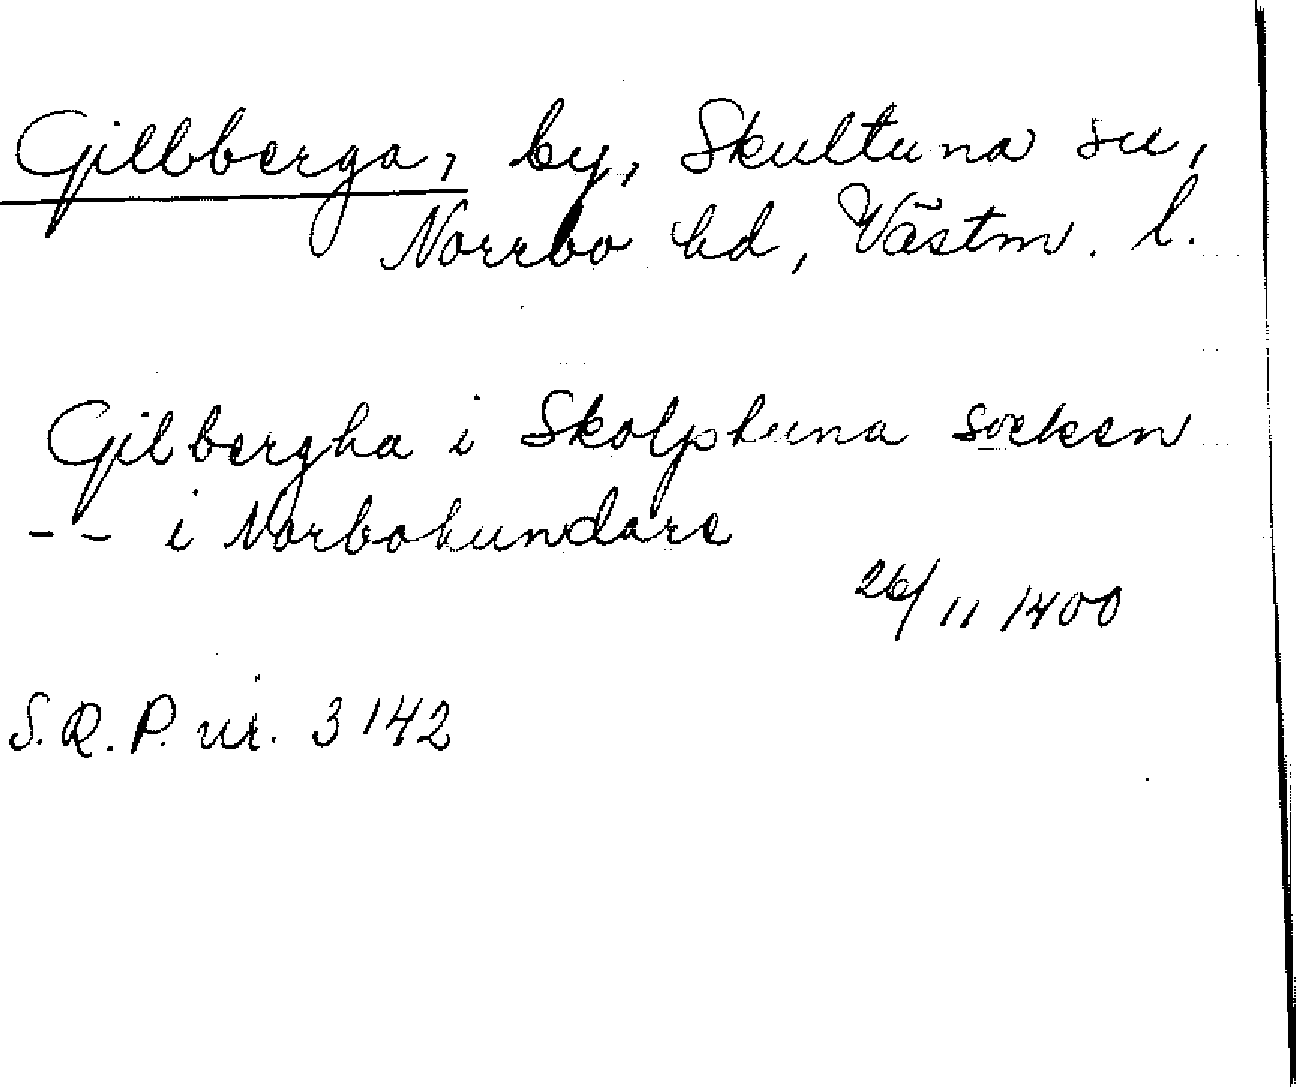 Gillberga, by, Skultuna sn,
Norrbo hd, Västm. l.
Gilbergha i Skolptuna socken
-- i Norbohundare
26/11 1400
S.R.P. nr. 3142